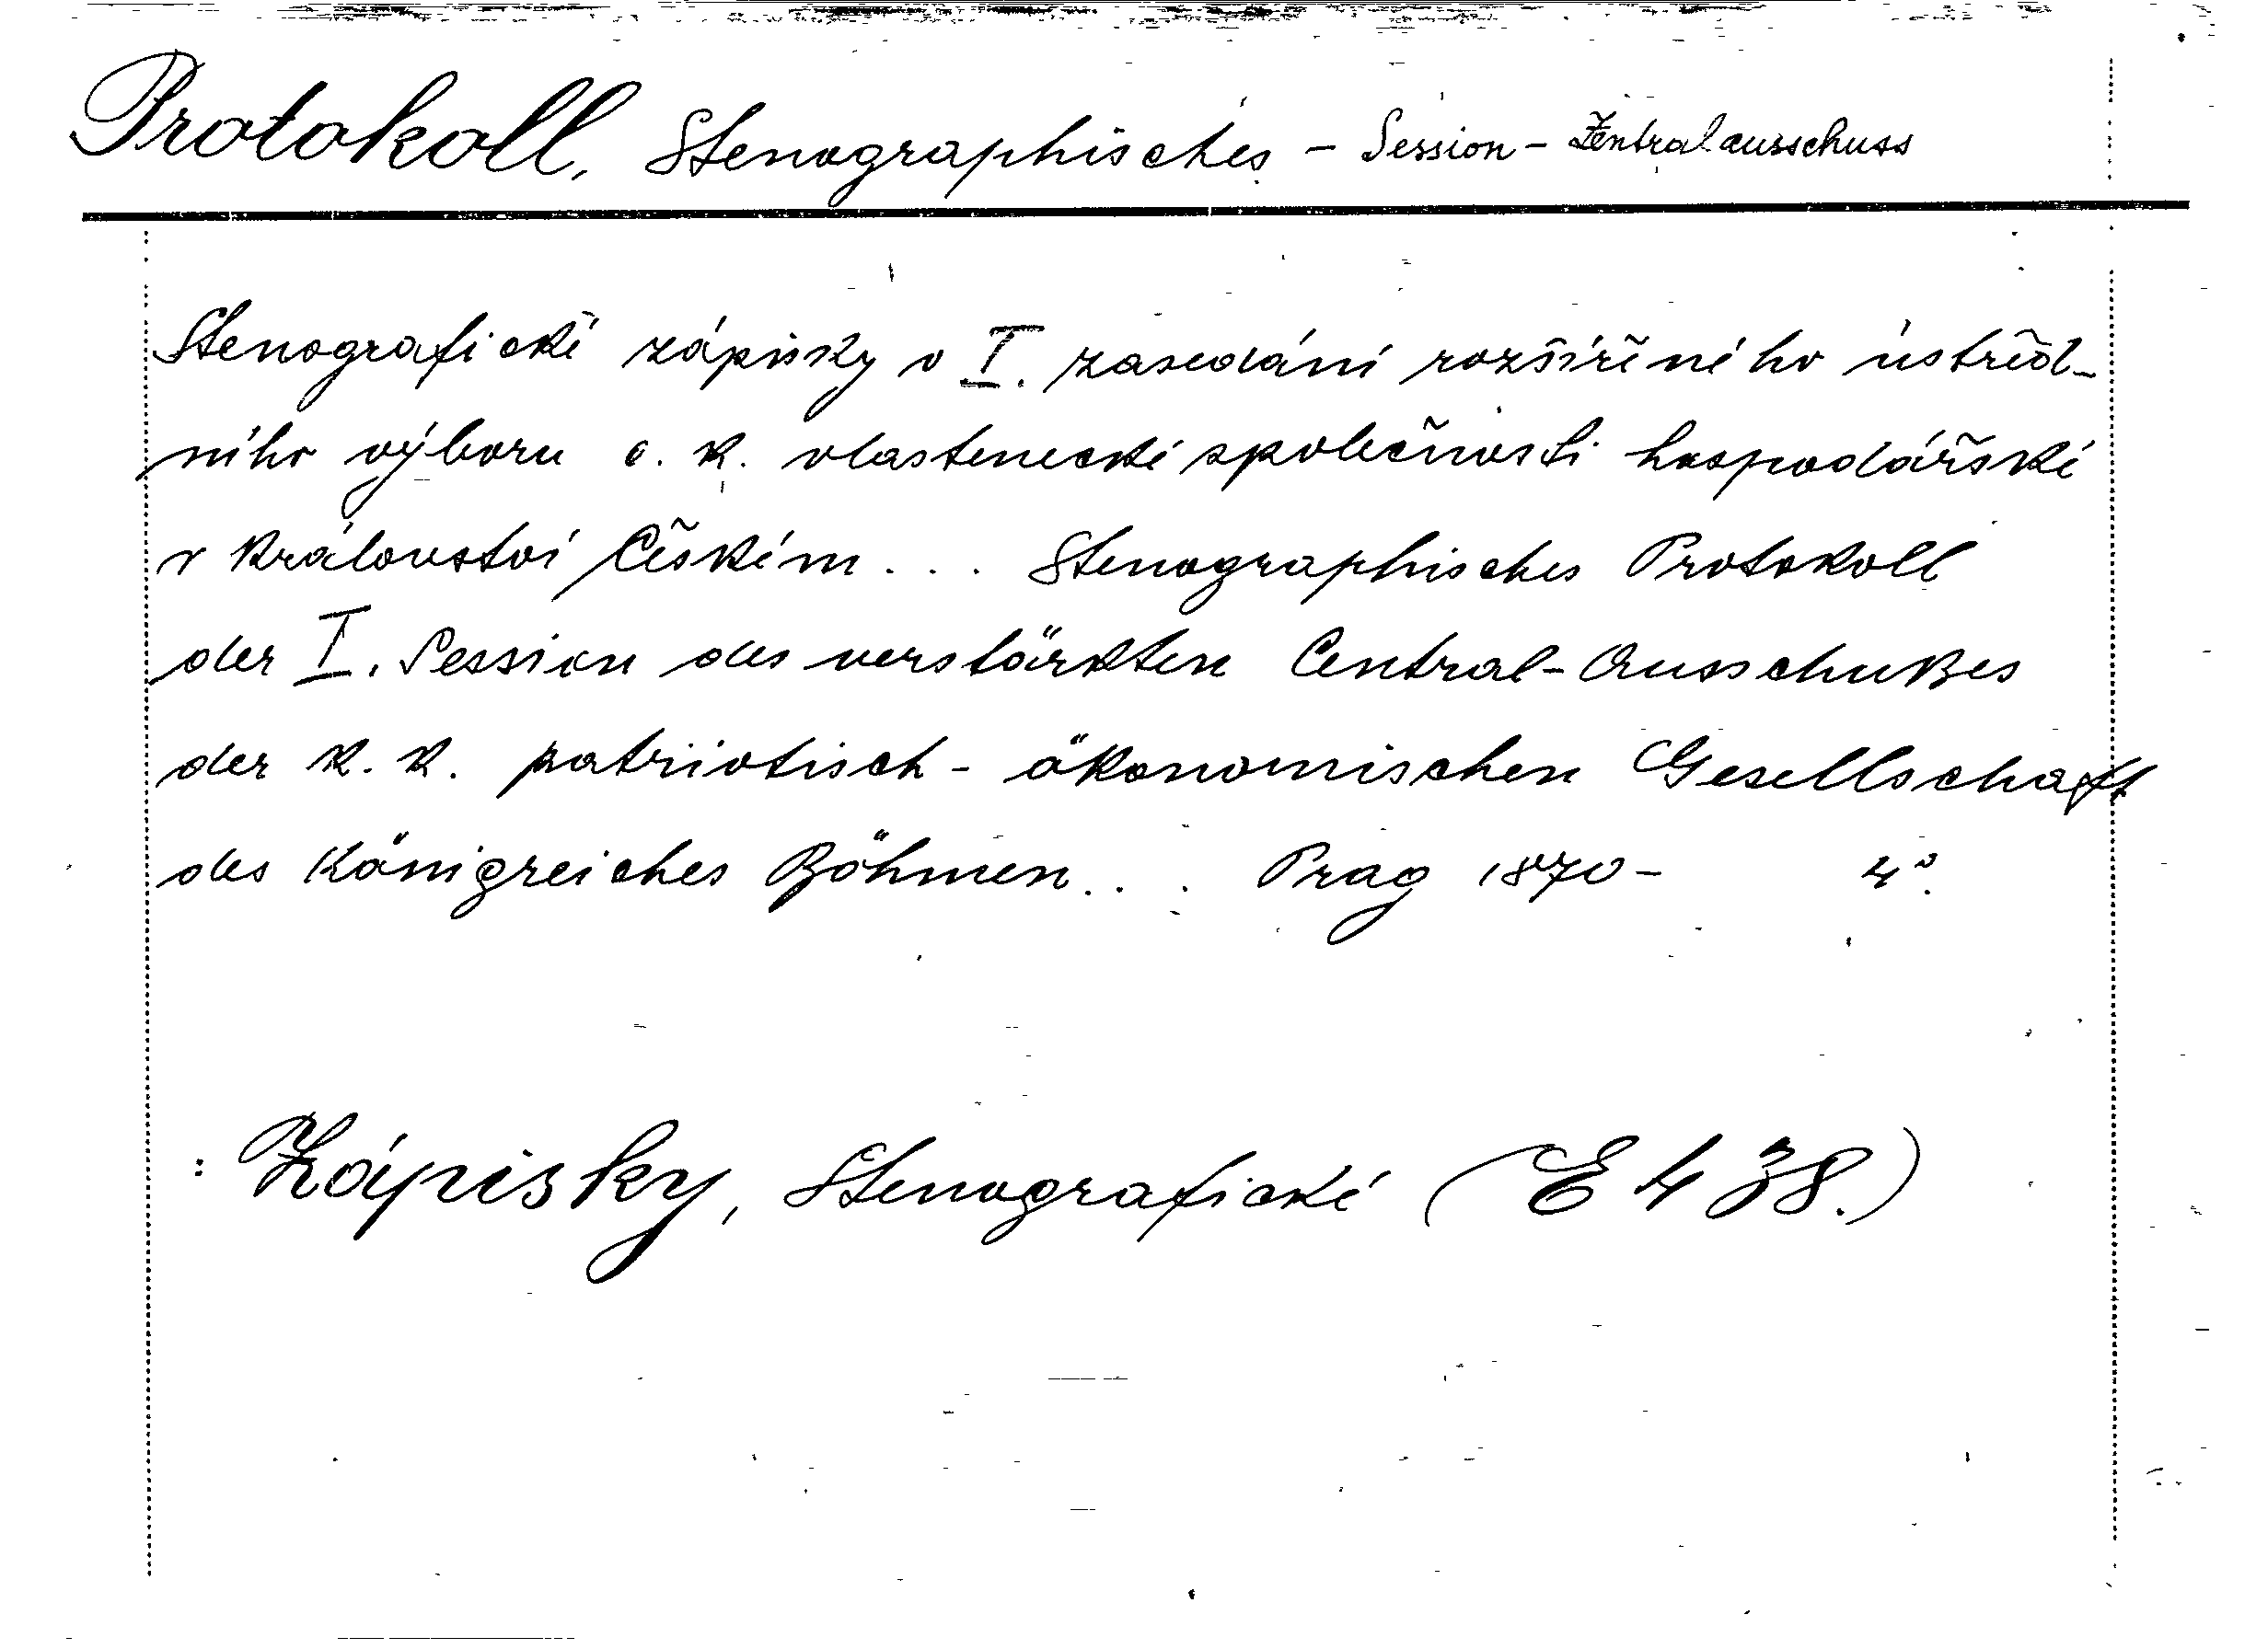 Protokoll, Stenographisches - Session - Zentralausschuss
Stenografické zápisky o I. zasedání rozšířeného ústřed-
ního výboru c. k. vlastenecké společnosti hospodářské
v Království Českém... Stenographisches Protokoll
der I. Session des verstärkten Central-Ausschußes
der K. K. patriotisch-ökonomischen Gesellschaft
des Königreiches Böhmen... Prag 1870- 4°.
: Zápisky, Stenografické (E 438.)